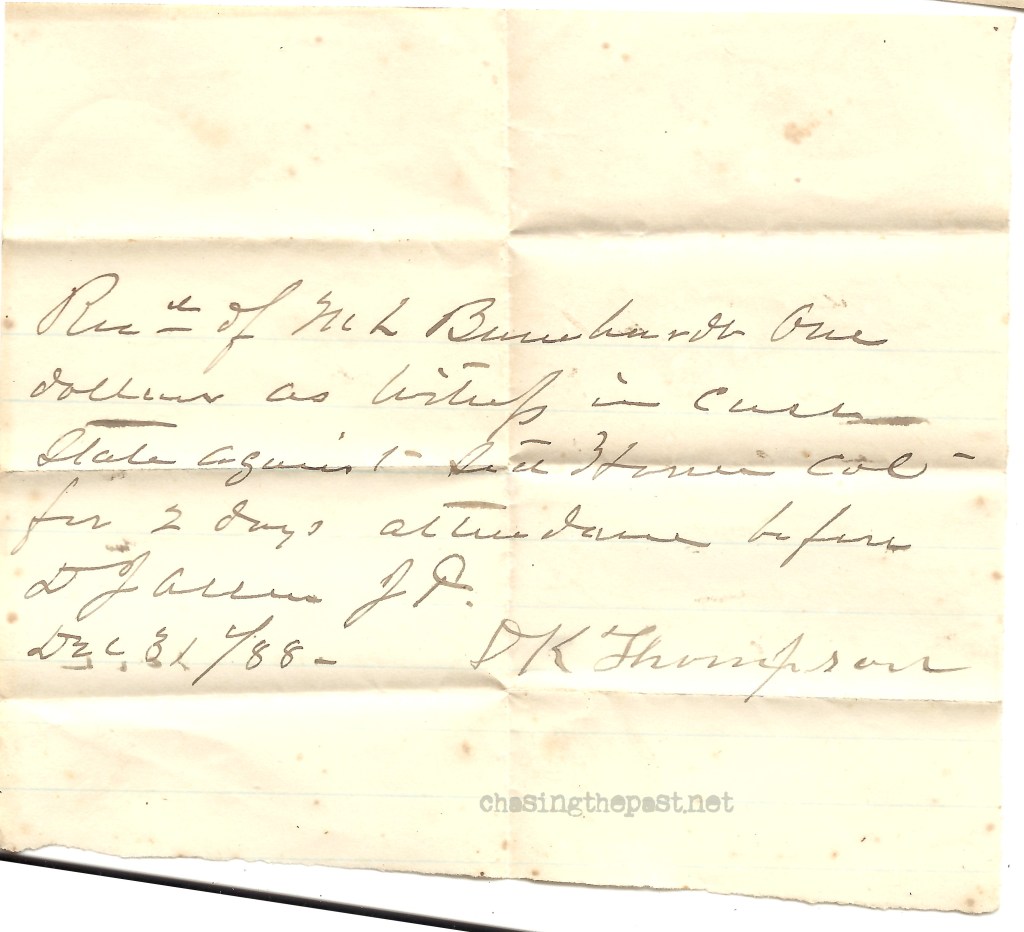 Recd of M L Barnhardt One
dollar as witness in case
State against Horne Col
for 2 days attendance before
D J Allen J P.
Dec 31 /88-
D K Thompson
chasingthepast.net